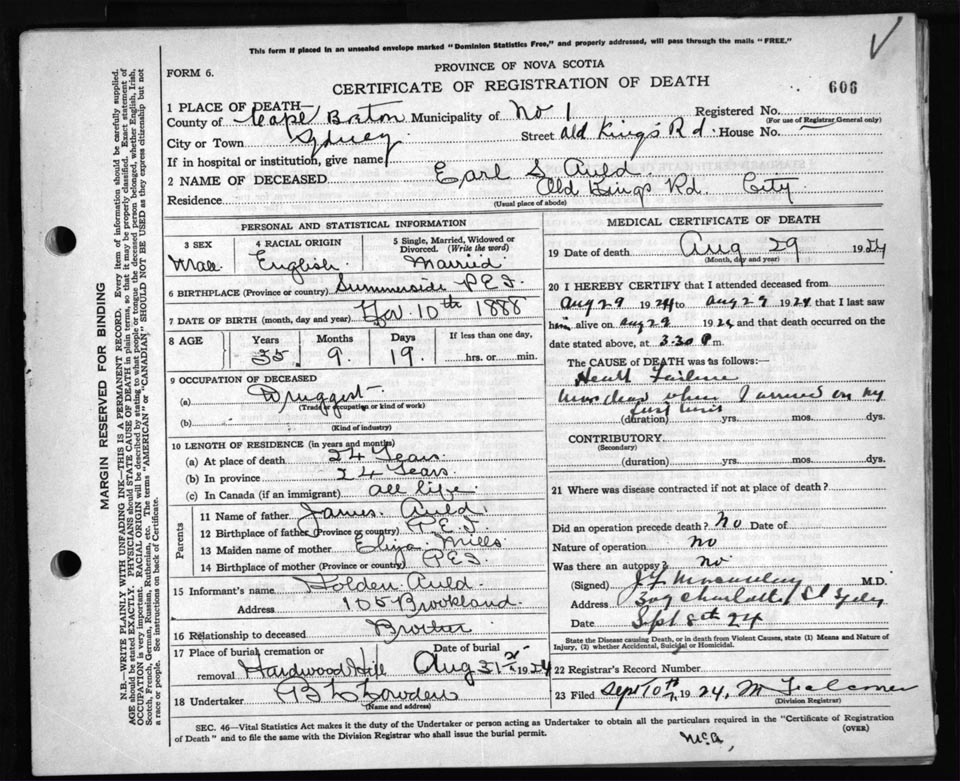 This form if placed in an unsealed envelope marked "Dominion Statistics Free," and properly addressed, will pass through the mails "FREE."
PROVINCE OF NOVA SCOTIA
FORM 6.
CERTIFICATE OF REGISTRATION OF DEATH
606
1 PLACE OF DEATH—
County of Cape Breton Municipality of No 1 Registered No.
(For use of Registrar General only)
City or Town Sydney Street Old Kings Rd. House No.
If in hospital or institution, give name
2 NAME OF DECEASED Earl S Auld.
Residence Old Kings Rd. City
(Usual place of abode)
PERSONAL AND STATISTICAL INFORMATION
3 SEX 4 RACIAL ORIGIN 5 Single, Married, Widowed or Divorced. (Write the word)
Male English Married
6 BIRTHPLACE (Province or country) Summerside P.E.I
7 DATE OF BIRTH (month, day and year) 10th 1888
8 AGE Years Months Days If less than one day,
35 9 19 hrs. or min.
9 OCCUPATION OF DECEASED
(a) Druggist
(Trade or occupation or kind of work)
(b)
(Kind of industry)
10 LENGTH OF RESIDENCE (in years and months)
(a) At place of death 24 Years
(b) In province 24 Years.
(c) In Canada (if an immigrant) all life
Parents
11 Name of father James Auld
12 Birthplace of father (Province or country) P.E.I
13 Maiden name of mother Eliza Mills
14 Birthplace of mother (Province or country) P.E.I
15 Informant's name Holden Auld
Address 105 Brookland
16 Relationship to deceased Brother
17 Place of burial, cremation or removal Hardwood Hill Date of burial Aug 31st 1924
18 Undertaker
(Name and address)
MEDICAL CERTIFICATE OF DEATH
19 Date of death Aug 29 1924
(Month, day and year)
20 I HEREBY CERTIFY that I attended deceased from
Aug 29 1924 to Aug 29 1924 that I last saw
him alive on Aug 29 1924 and that death occurred on the
date stated above, at 3.30 P m.
The CAUSE OF DEATH was as follows:
Heart Failure
Was dead when I arrived on my
first visit
(duration) yrs. mos. dys.
CONTRIBUTORY.
(Secondary)
(duration) yrs. mos. dys.
21 Where was disease contracted if not at place of death?
Did an operation precede death? No Date of
Nature of operation no
Was there an autopsy? no
(Signed) M.D.
Address Charlotte St Sydney
Date Sept 8th 24
State the Disease causing Death, or in death from Violent Causes, state (1) Means and Nature of Injury, (2) whether Accidental, Suicidal or Homicidal.
22 Registrar's Record Number
23 Filed Sept 10th 1924, M Falconer
(Division Registrar)
SEC. 46—Vital Statistics Act makes it the duty of the Undertaker or person acting as Undertaker to obtain all the particulars required in the "Certificate of Registration
of Death" and to file the same with the Division Registrar who shall issue the burial permit. (OVER)
MARGIN RESERVED FOR BINDING
N.B.—WRITE PLAINLY WITH UNFADING INK—THIS IS A PERMANENT RECORD. Every item of information should be carefully supplied.
AGE should be stated EXACTLY. PHYSICIANS should STATE CAUSE OF DEATH in plain terms, so that it may be properly classified. Exact statement of
OCCUPATION is very important. RACIAL ORIGIN will be described by stating to what people or tongue the deceased person belonged, whether English, Irish,
Scotch, French, German, Russian, Ruthenian, etc. The terms "AMERICAN" or "CANADIAN" SHOULD NOT BE USED as they express citizenship but not
a race or people. See instructions on back of Certificate.